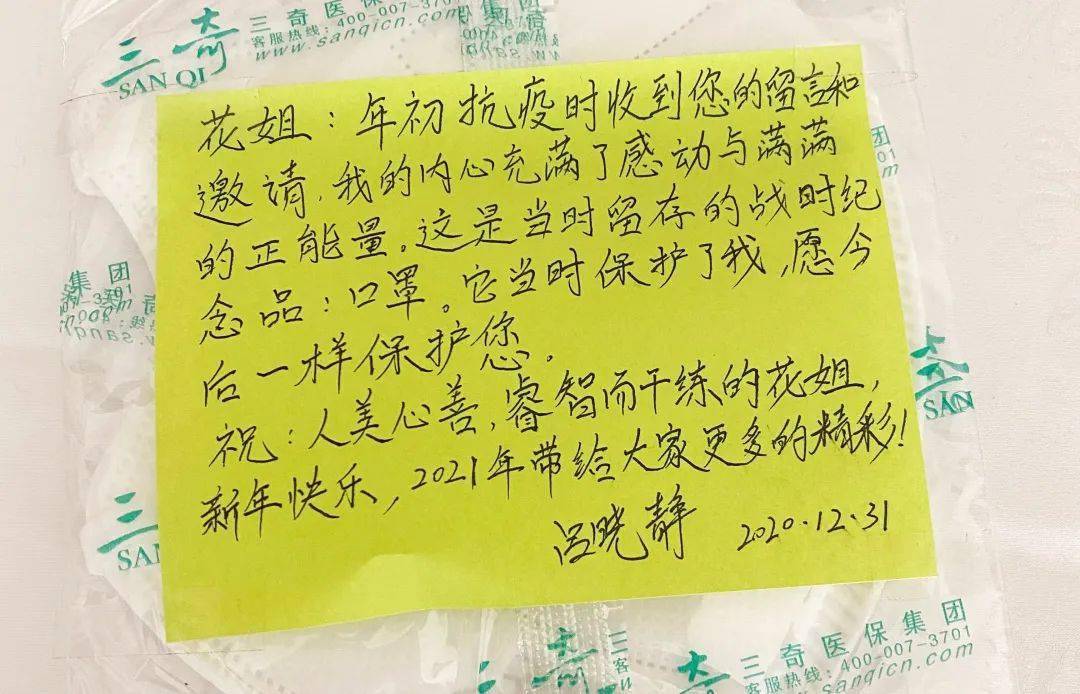 三奇
SAN QI
三奇医保集团
客服热线:400-007-3701
www.sanqicn.com
花姐：年初抗疫时收到您的留言和
邀请，我的内心充满了感动与满满
的正能量。这是当时留存的战时纪
念品：口罩。它当时保护了我，愿今
后一样保护您。
祝：人美心善，睿智而干练的花姐，
新年快乐，2021年带给大家更多的精彩！
吕晓静 2020.12.31
集团
三
SAN
奇
SAN
三奇医保集团
客服热线:400-007-3701
www.sanqicn.com